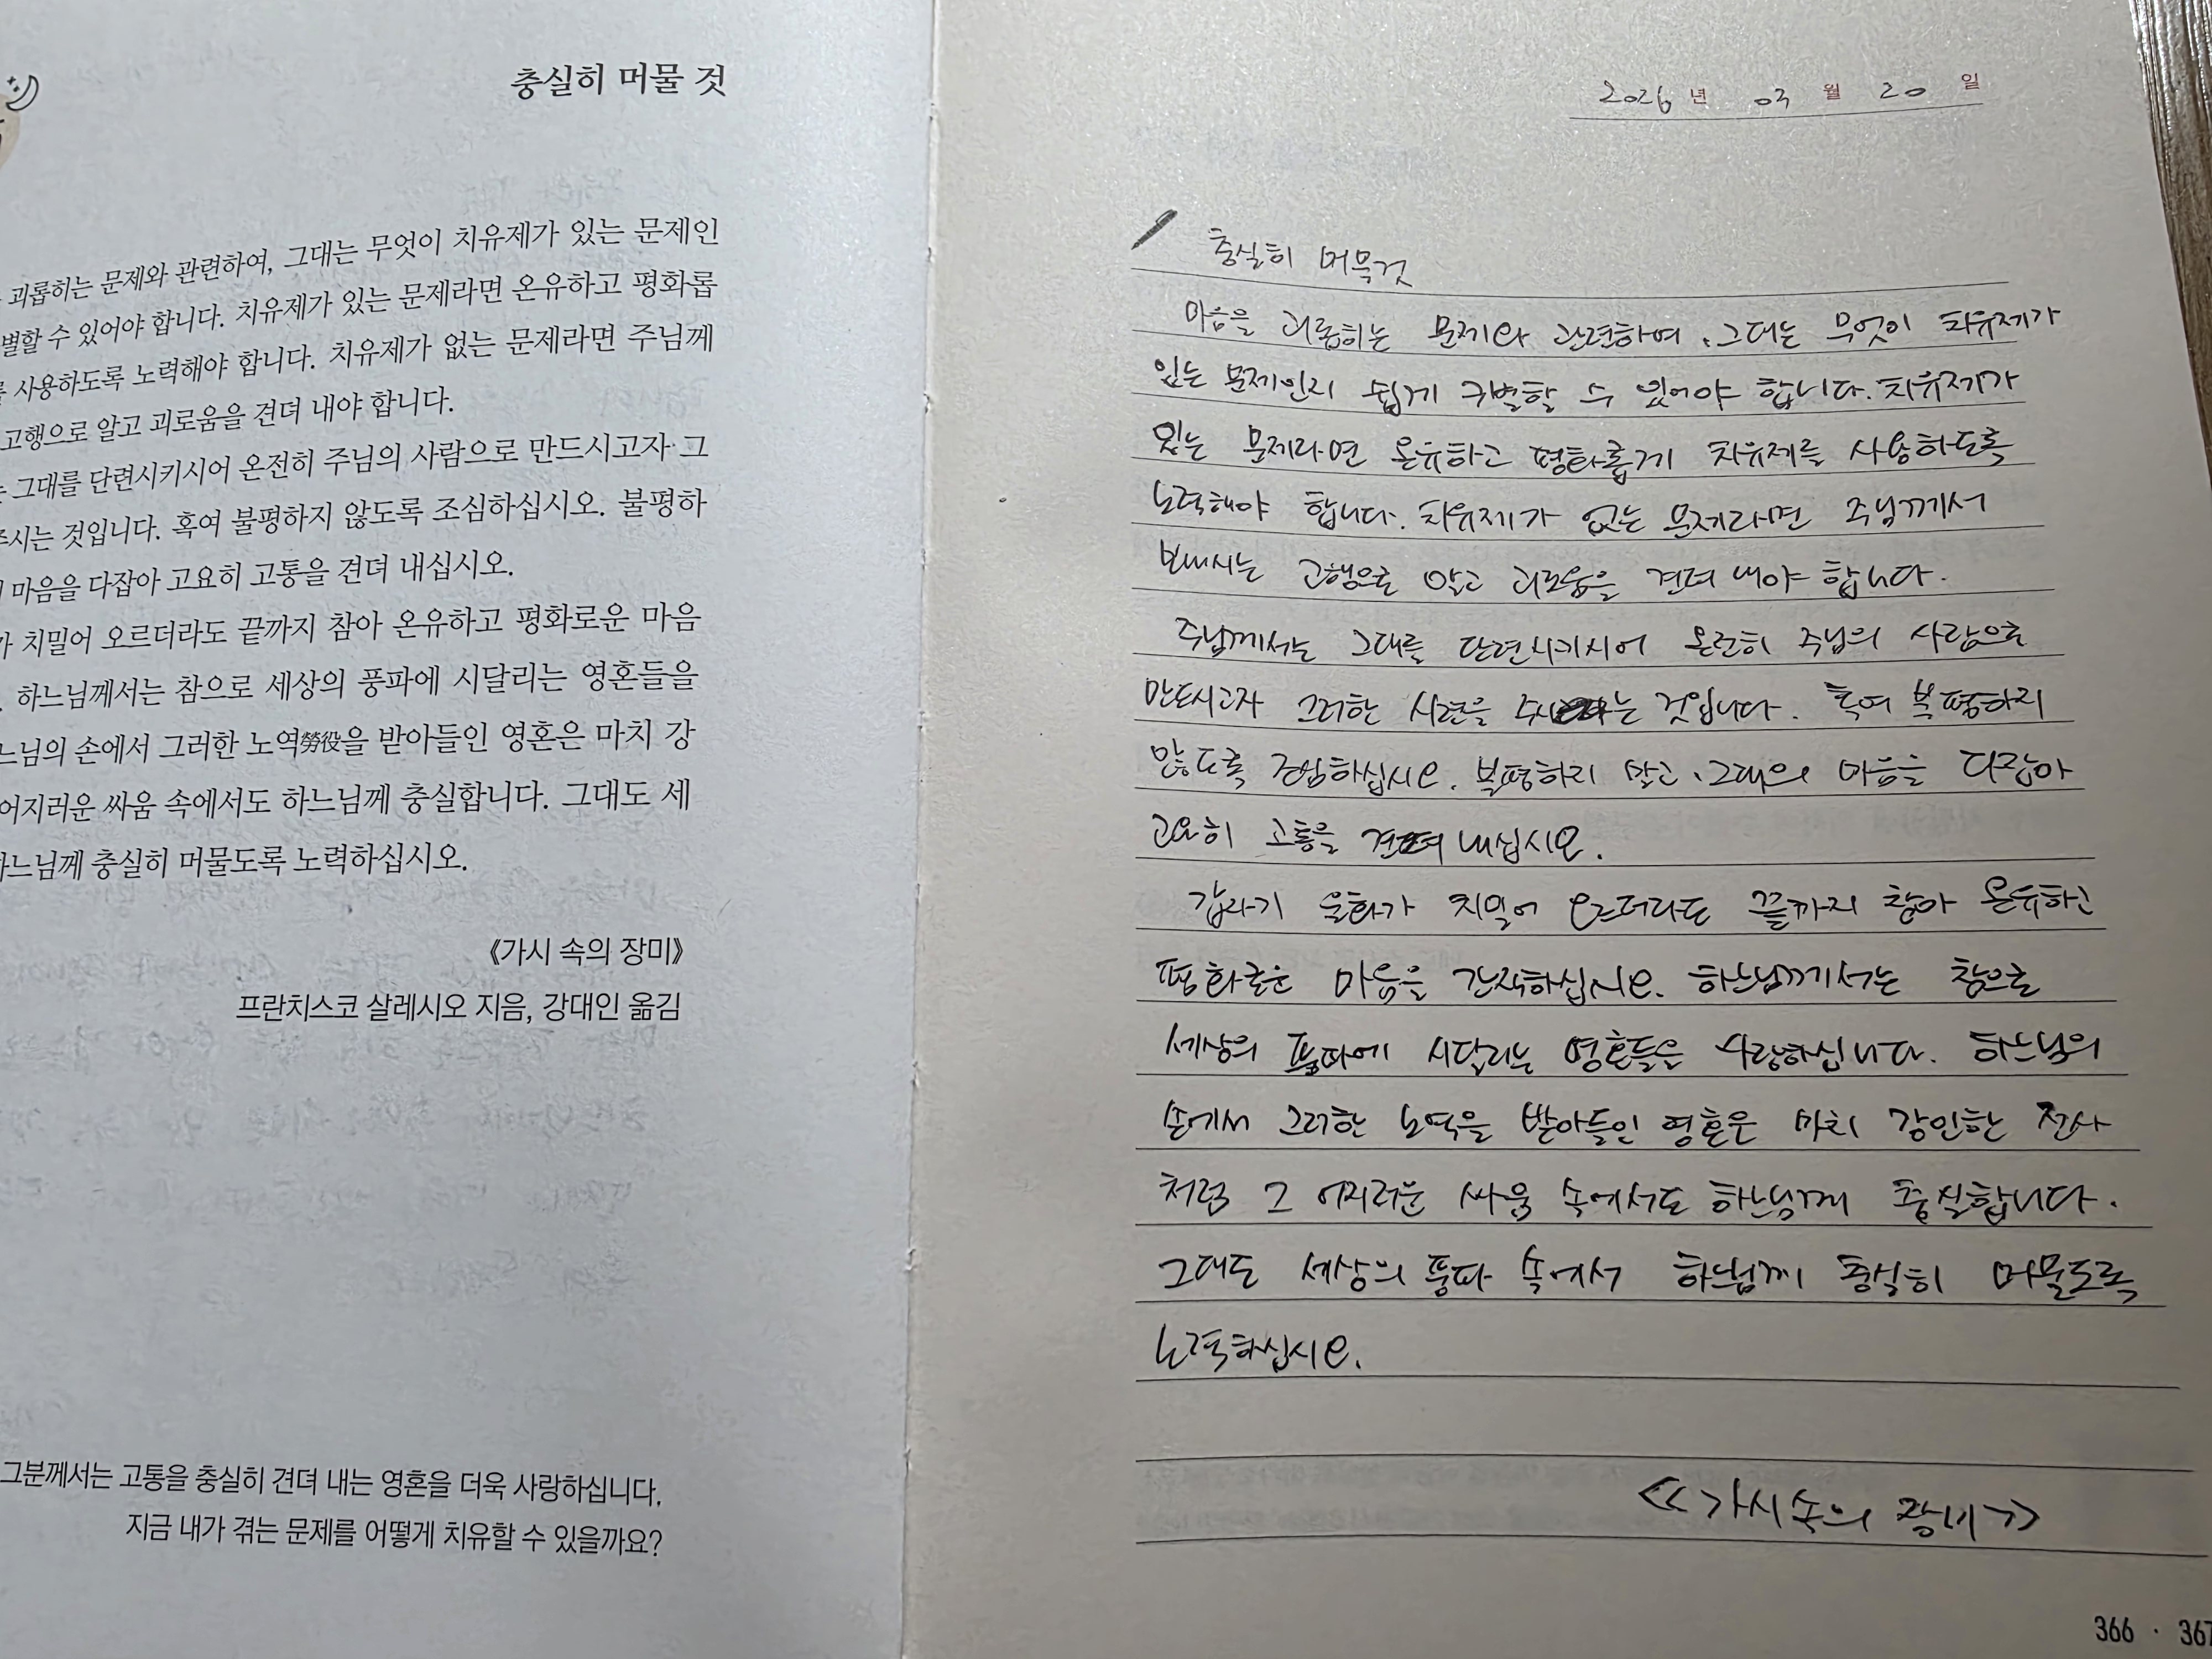 충실히 머물 것
괴롭히는 문제와 관련하여, 그대는 무엇이 치유제가 있는 문제인
별할 수 있어야 합니다. 치유제가 있는 문제라면 온유하고 평화롭
를 사용하도록 노력해야 합니다. 치유제가 없는 문제라면 주님께
고행으로 알고 괴로움을 견뎌 내야 합니다.
는 그대를 단련시키시어 온전히 주님의 사람으로 만드시고자 그
주시는 것입니다. 혹여 불평하지 않도록 조심하십시오. 불평하
마음을 다잡아 고요히 고통을 견뎌 내십시오.
가 치밀어 오르더라도 끝까지 참아 온유하고 평화로운 마음
. 하느님께서는 참으로 세상의 풍파에 시달리는 영혼들을
느님의 손에서 그러한 노역勞役을 받아들인 영혼은 마치 강
어지러운 싸움 속에서도 하느님께 충실합니다. 그대도 세
하느님께 충실히 머물도록 노력하십시오.
《가시 속의 장미》
프란치스코 살레시오 지음, 강대인 옮김
그분께서는 고통을 충실히 견뎌 내는 영혼을 더욱 사랑하십니다.
지금 내가 겪는 문제를 어떻게 치유할 수 있을까요?
2026년 03월 20일
충실히 머묵것
마음을 괴롭히는 문제와 관련하여, 그대는 무엇이 치유제가
있는 문제인지 쉽게 구별할 수 있어야 합니다. 치유제가
있는 문제라면 온유하고 평화롭게 치유제를 사용하도록
노력해야 합니다. 치유제가 없는 문제라면 주님께서
보내시는 고행으로 알고 괴로움을 견뎌 내야 합니다.
주님께서는 그대를 단련시키시어 온전히 주님의 사람으로
만드시고자 그러한 시련을 주시는 것입니다. 혹여 불평하지
않도록 조심하십시오. 불평하지 말고, 그대의 마음을 다잡아
고요히 고통을 견뎌 내십시오.
갑자기 울화가 치밀어 오르더라도 끝까지 참아 온유하고
평화로운 마음을 간직하십시오. 하느님께서는 참으로
세상의 풍파에 시달리는 영혼들을 사랑하십니다. 하느님의
손에서 그러한 노역을 받아들인 영혼은 마치 강인한 전사
처럼 그 어지러운 싸움 속에서도 하느님께 충실합니다.
그대도 세상의 풍파 속에서 하느님께 충실히 머물도록
노력하십시오.
<<가시속의 장미>>
366 · 367